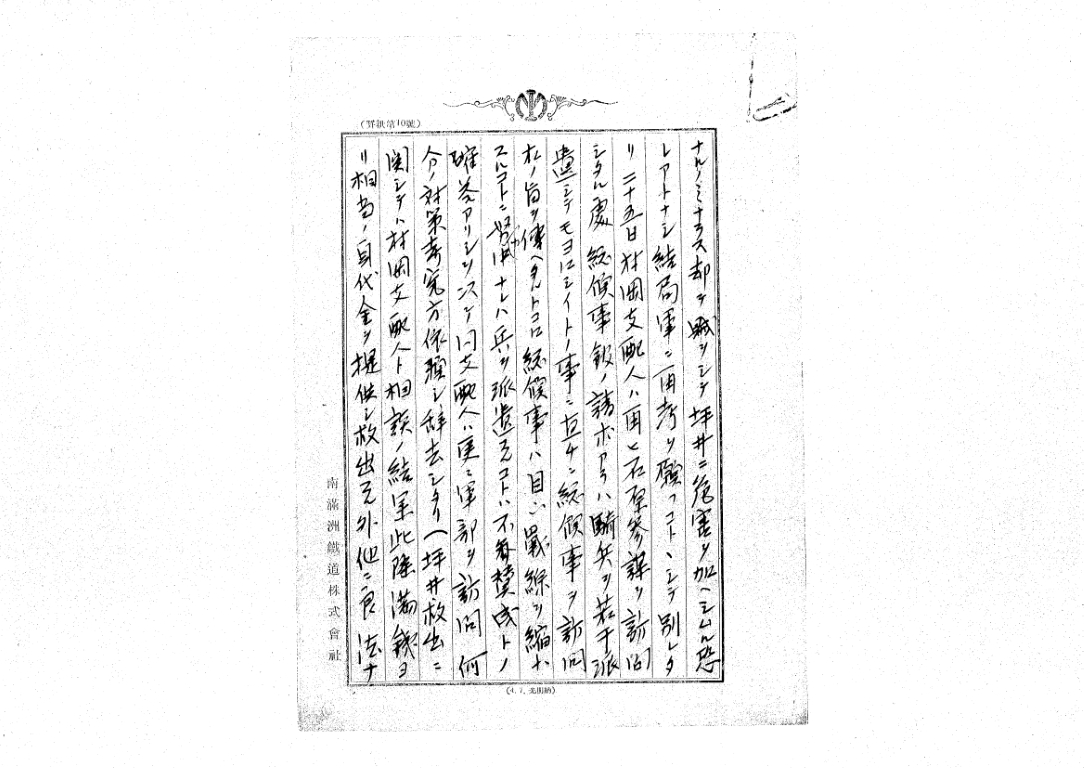 (罫紙第10號)
ナルノミナラス却ツテ賊ヲシテ坪井ニ危害ヲ加ヘシムル恐
レアトナシ結局軍ニ再考ヲ願フコトヽシテ別レタ
リ二十五日村岡支配人ハ再ヒ石原参謀ヲ訪問
シタル處総領事館ノ請求アラハ騎兵ヲ若干派
遣シテモヨロシイトノ事ニ直チニ総領事ヲ訪問
其ノ旨ヲ傳ヘタルトコロ総領事ハ目下戰線ヲ縮小
スルコトニ努力中ナレハ兵ヲ派遣スルコトハ不賛成トノ
確答アリシヲ以テ同支配人ハ更ニ軍部ヲ訪問何
分ノ対策考究方依頼シ辞去シタリ(坪井救出ニ
関シテハ村岡支配人ト相談ノ結果此際満鉄ヨ
リ相当ノ身代金ヲ提供シ救出スル外他ニ良法ナ
南滿洲鐵道株式會社